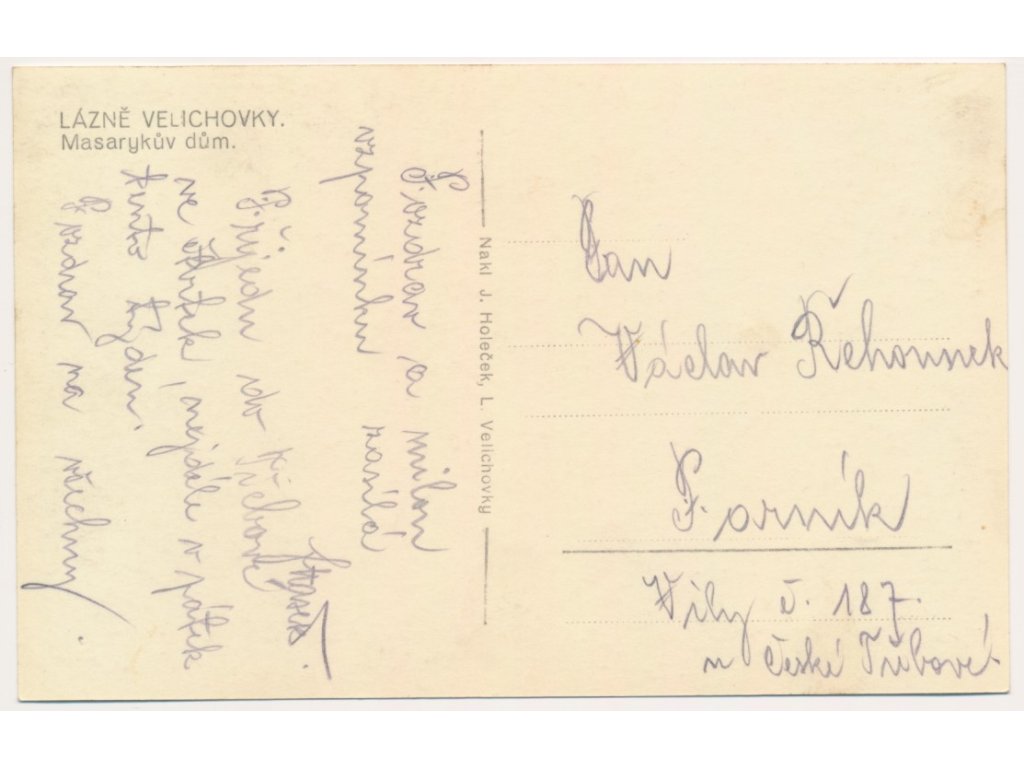 LÁZNĚ VELICHOVKY.
Masarykův dům.
Pozdrav a milou
vzpomínku zasílá
Přijedu do Třebové
ve čtvrtek, nejdéle v pátek
tento týden.
Pozdrav na všechny.
Nakl J. Holeček, L. Velichovky
Pan
Václav Řehounek
Parník
Vily č. 187.
u České Třebové